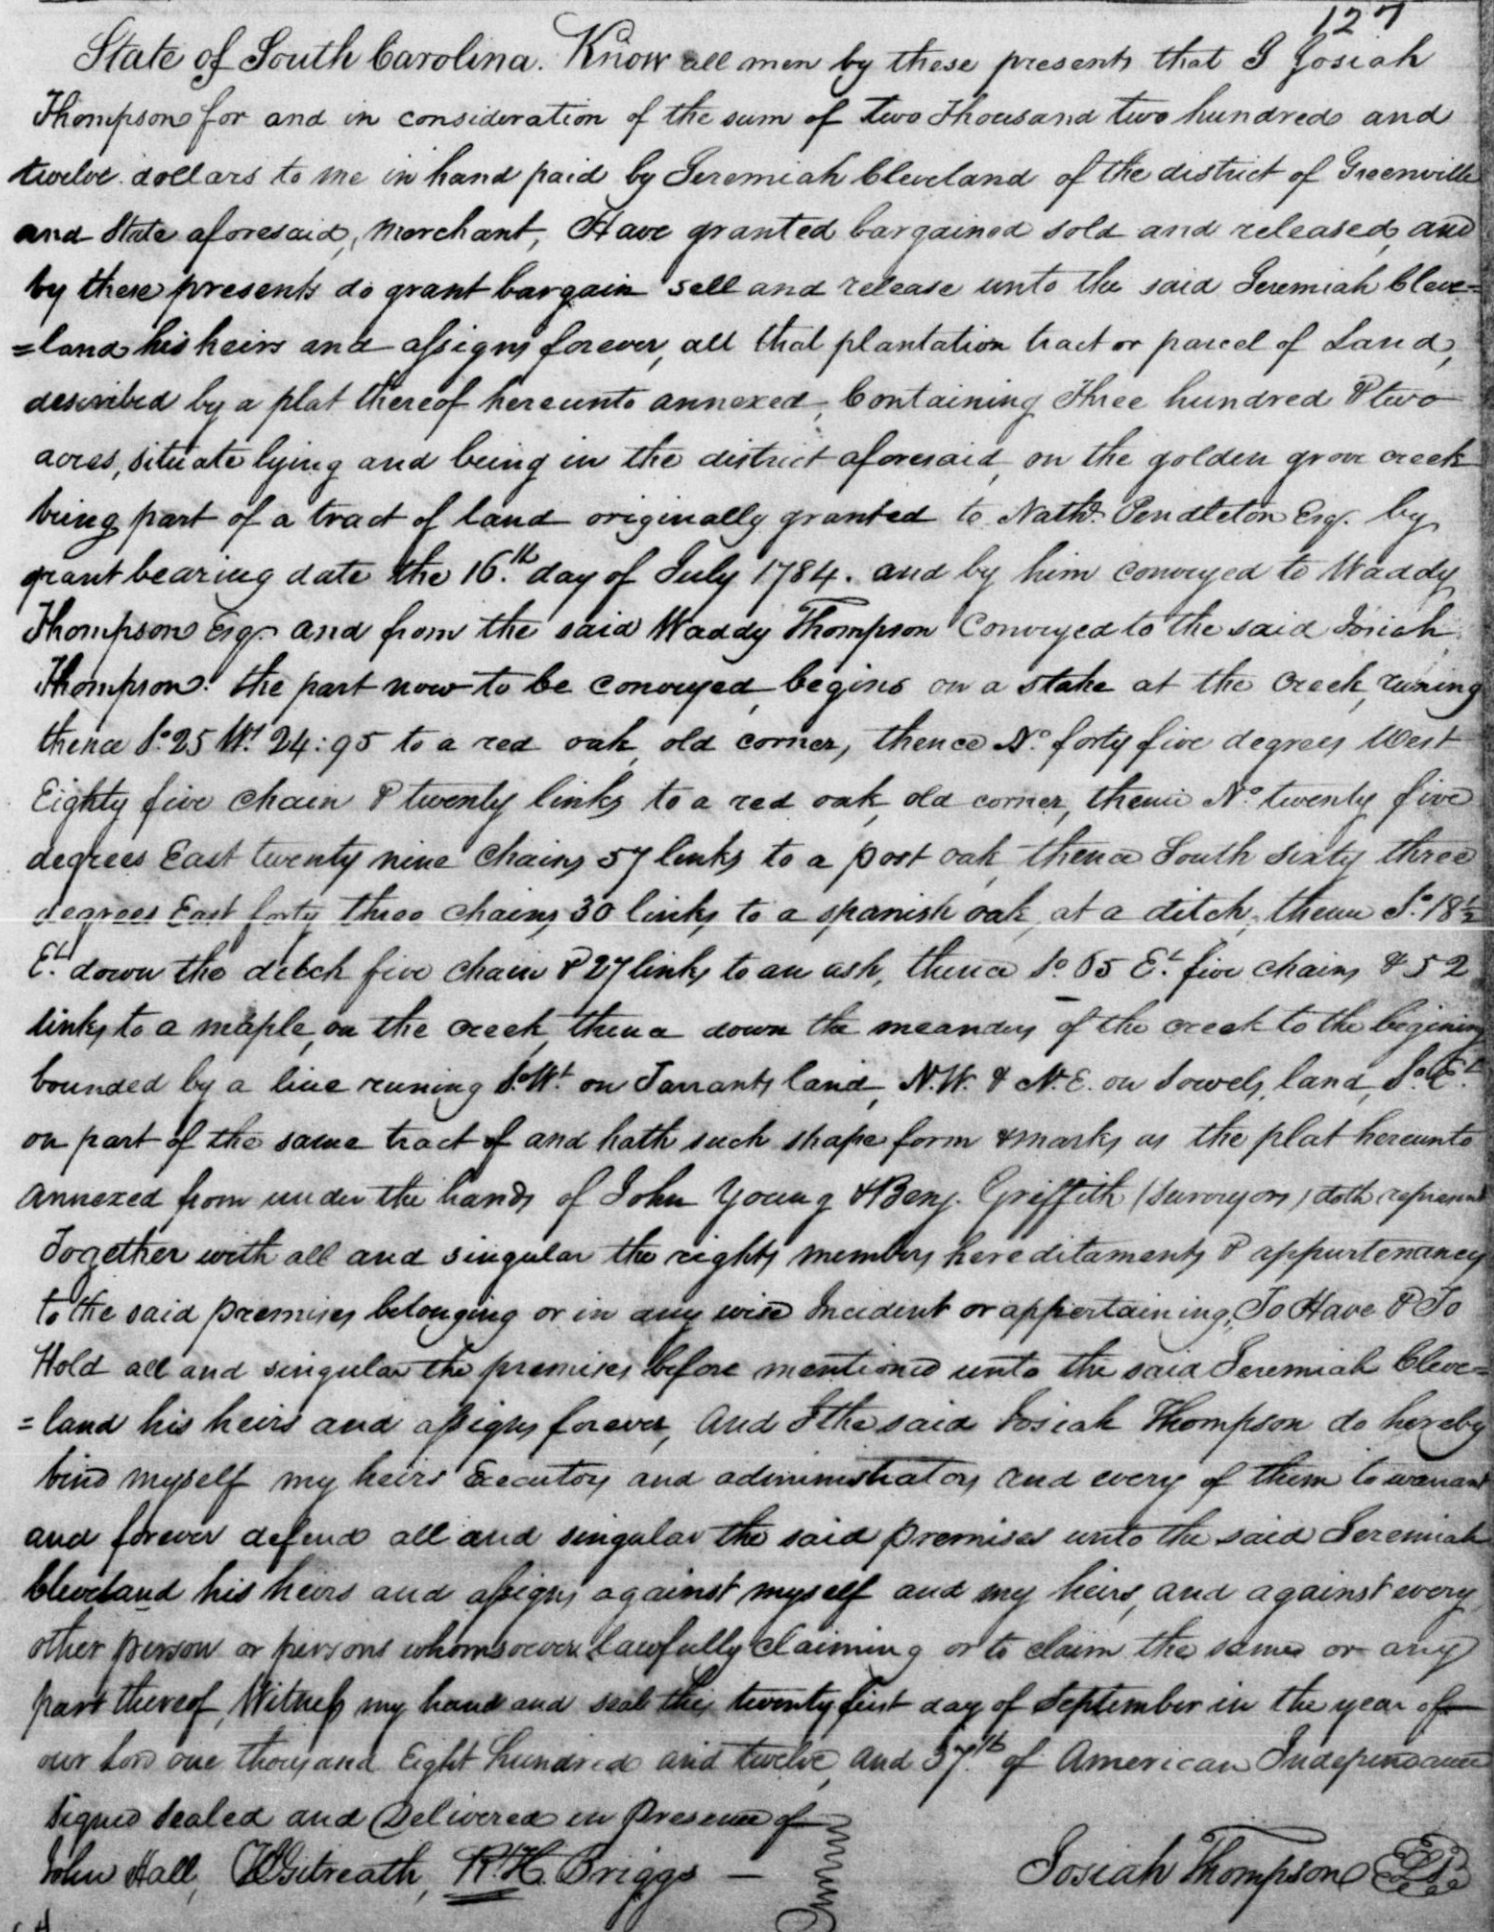 127
State of South Carolina. Know all men by these presents that I Josiah
Thompson for and in consideration of the sum of two Thousand two hundred and
twelve dollars to me in hand paid by Jeremiah Cleveland of the district of Greenville
and State aforesaid, Merchant, Have granted bargained sold and released, and
by these presents do grant bargain sell and release unto the said Jeremiah Cleve=
=land his heirs and assigns forever, all that plantation tract or parcel of Land,
described by a plat thereof hereunto annexed, Containing Three hundred & two
acres, situate lying and being in the district aforesaid, on the golden grove creek
being part of a tract of land originally granted to Nathl. Pendleton Esqr. by
grant bearing date the 16.th day of July 1784. and by him conveyed to Waddy
Thompson Esqr. and from the said Waddy Thompson Conveyed to the said Josiah
Thompson. the part now to be conveyed, begins on a stake at the Creek, runing
thence So. 25 Wt. 24:95 to a red oak, old corner, thence No. forty five degrees West
Eighty five chain & twenty links to a red oak, old corner, thence No. twenty five
degrees East twenty nine Chains 57 links to a post oak, thence South sixty three
degrees East forty three chains 30 links to a spanish oak, at a ditch, thence So. 18½
Et. down the ditch five chain & 27 links to an ash, thence So. 65 Et. five chains & 52
links to a maple, on the creek, thence down the meanders of the creek to the begining
bounded by a line runing So. Wt. on Tarrants land, N.W. & N.E. on Sowels, land, So. Et.
on part of the same tract of and hath such shape form & marks as the plat hereunto
annexed from under the hands of John Young & Benj. Griffith (Surveyors) doth represent
Together with all and singular the rights members hereditaments & appurtenances
to the said premises belonging or in any wise Incident or appertaining, To Have & To
Hold all and singular the premises before mentioned unto the said Jeremiah Cleve=
=land his heirs and assigns forever, And I the said Josiah Thompson do hereby
bind myself my heirs Executors and administrators and every of them to warrant
and forever defend all and singular the said premises unto the said Jeremiah
Cleveland his heirs and assigns against myself and my heirs, and against every
other person or persons whomsoever lawfully Claiming or to claim the same or any
part thereof, Witness my hand and seal this twenty first day of September in the year of
our Lord one thousand Eight hundred and twelve, and 37.th of American Independance
Signed Sealed and Delivered in Presence of
John Hall, Gilreath, R. H. Briggs
Josiah Thompson LS